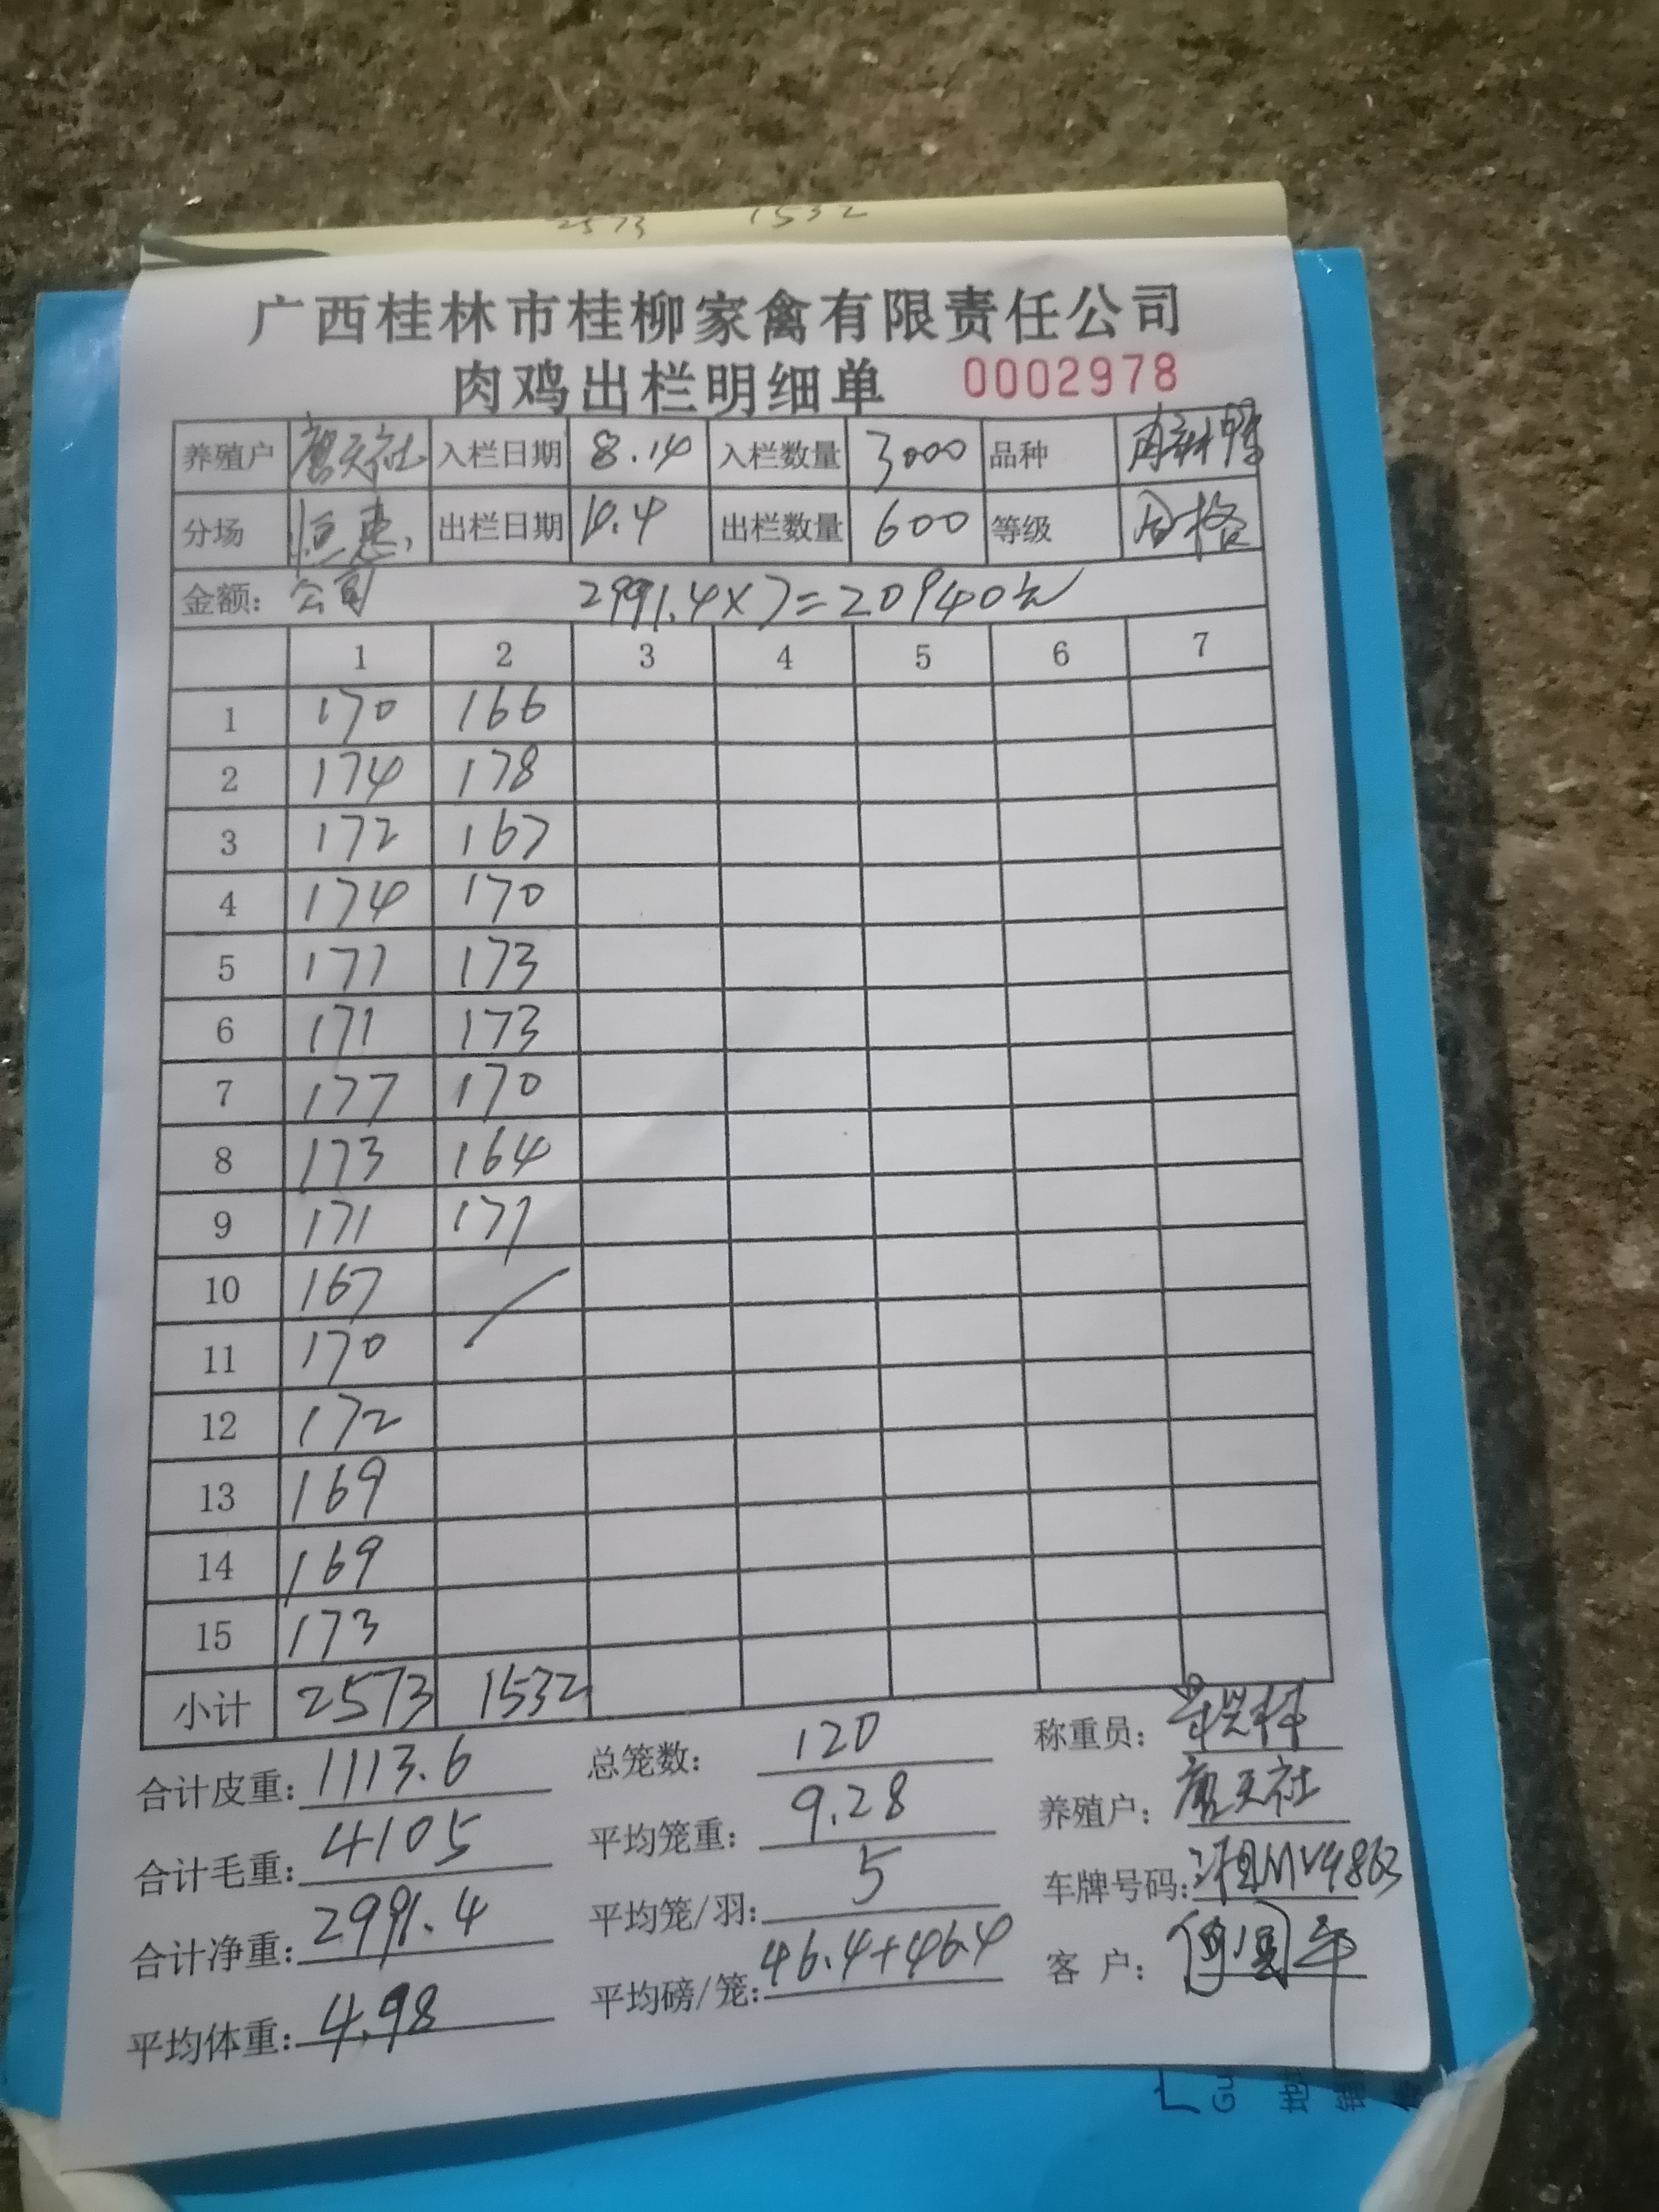 2573 1532
广西桂林市桂柳家禽有限责任公司
肉鸡出栏明细单 0002978
养殖户 廖天社 入栏日期 8.14 入栏数量 3000 品种
分场 恒惠 出栏日期 10.4 出栏数量 600 等级 合格
金额: 公司 2991.4×7=20940元
1 2 3 4 5 6 7
1 170 166
2 174 178
3 172 167
4 174 170
5 171 173
6 171 173
7 177 170
8 173 164
9 171 171
10 167
11 170
12 172
13 169
14 169
15 173
小计 2573 1532
合计皮重: 1113.6 总笼数: 120 称重员:
合计毛重: 4105 平均笼重: 9.28 养殖户: 廖天社
合计净重: 2991.4 平均笼/羽: 5 车牌号码: 湘MV9863
平均体重: 4.98 平均磅/笼: 46.4+46.4 客户:
Gu